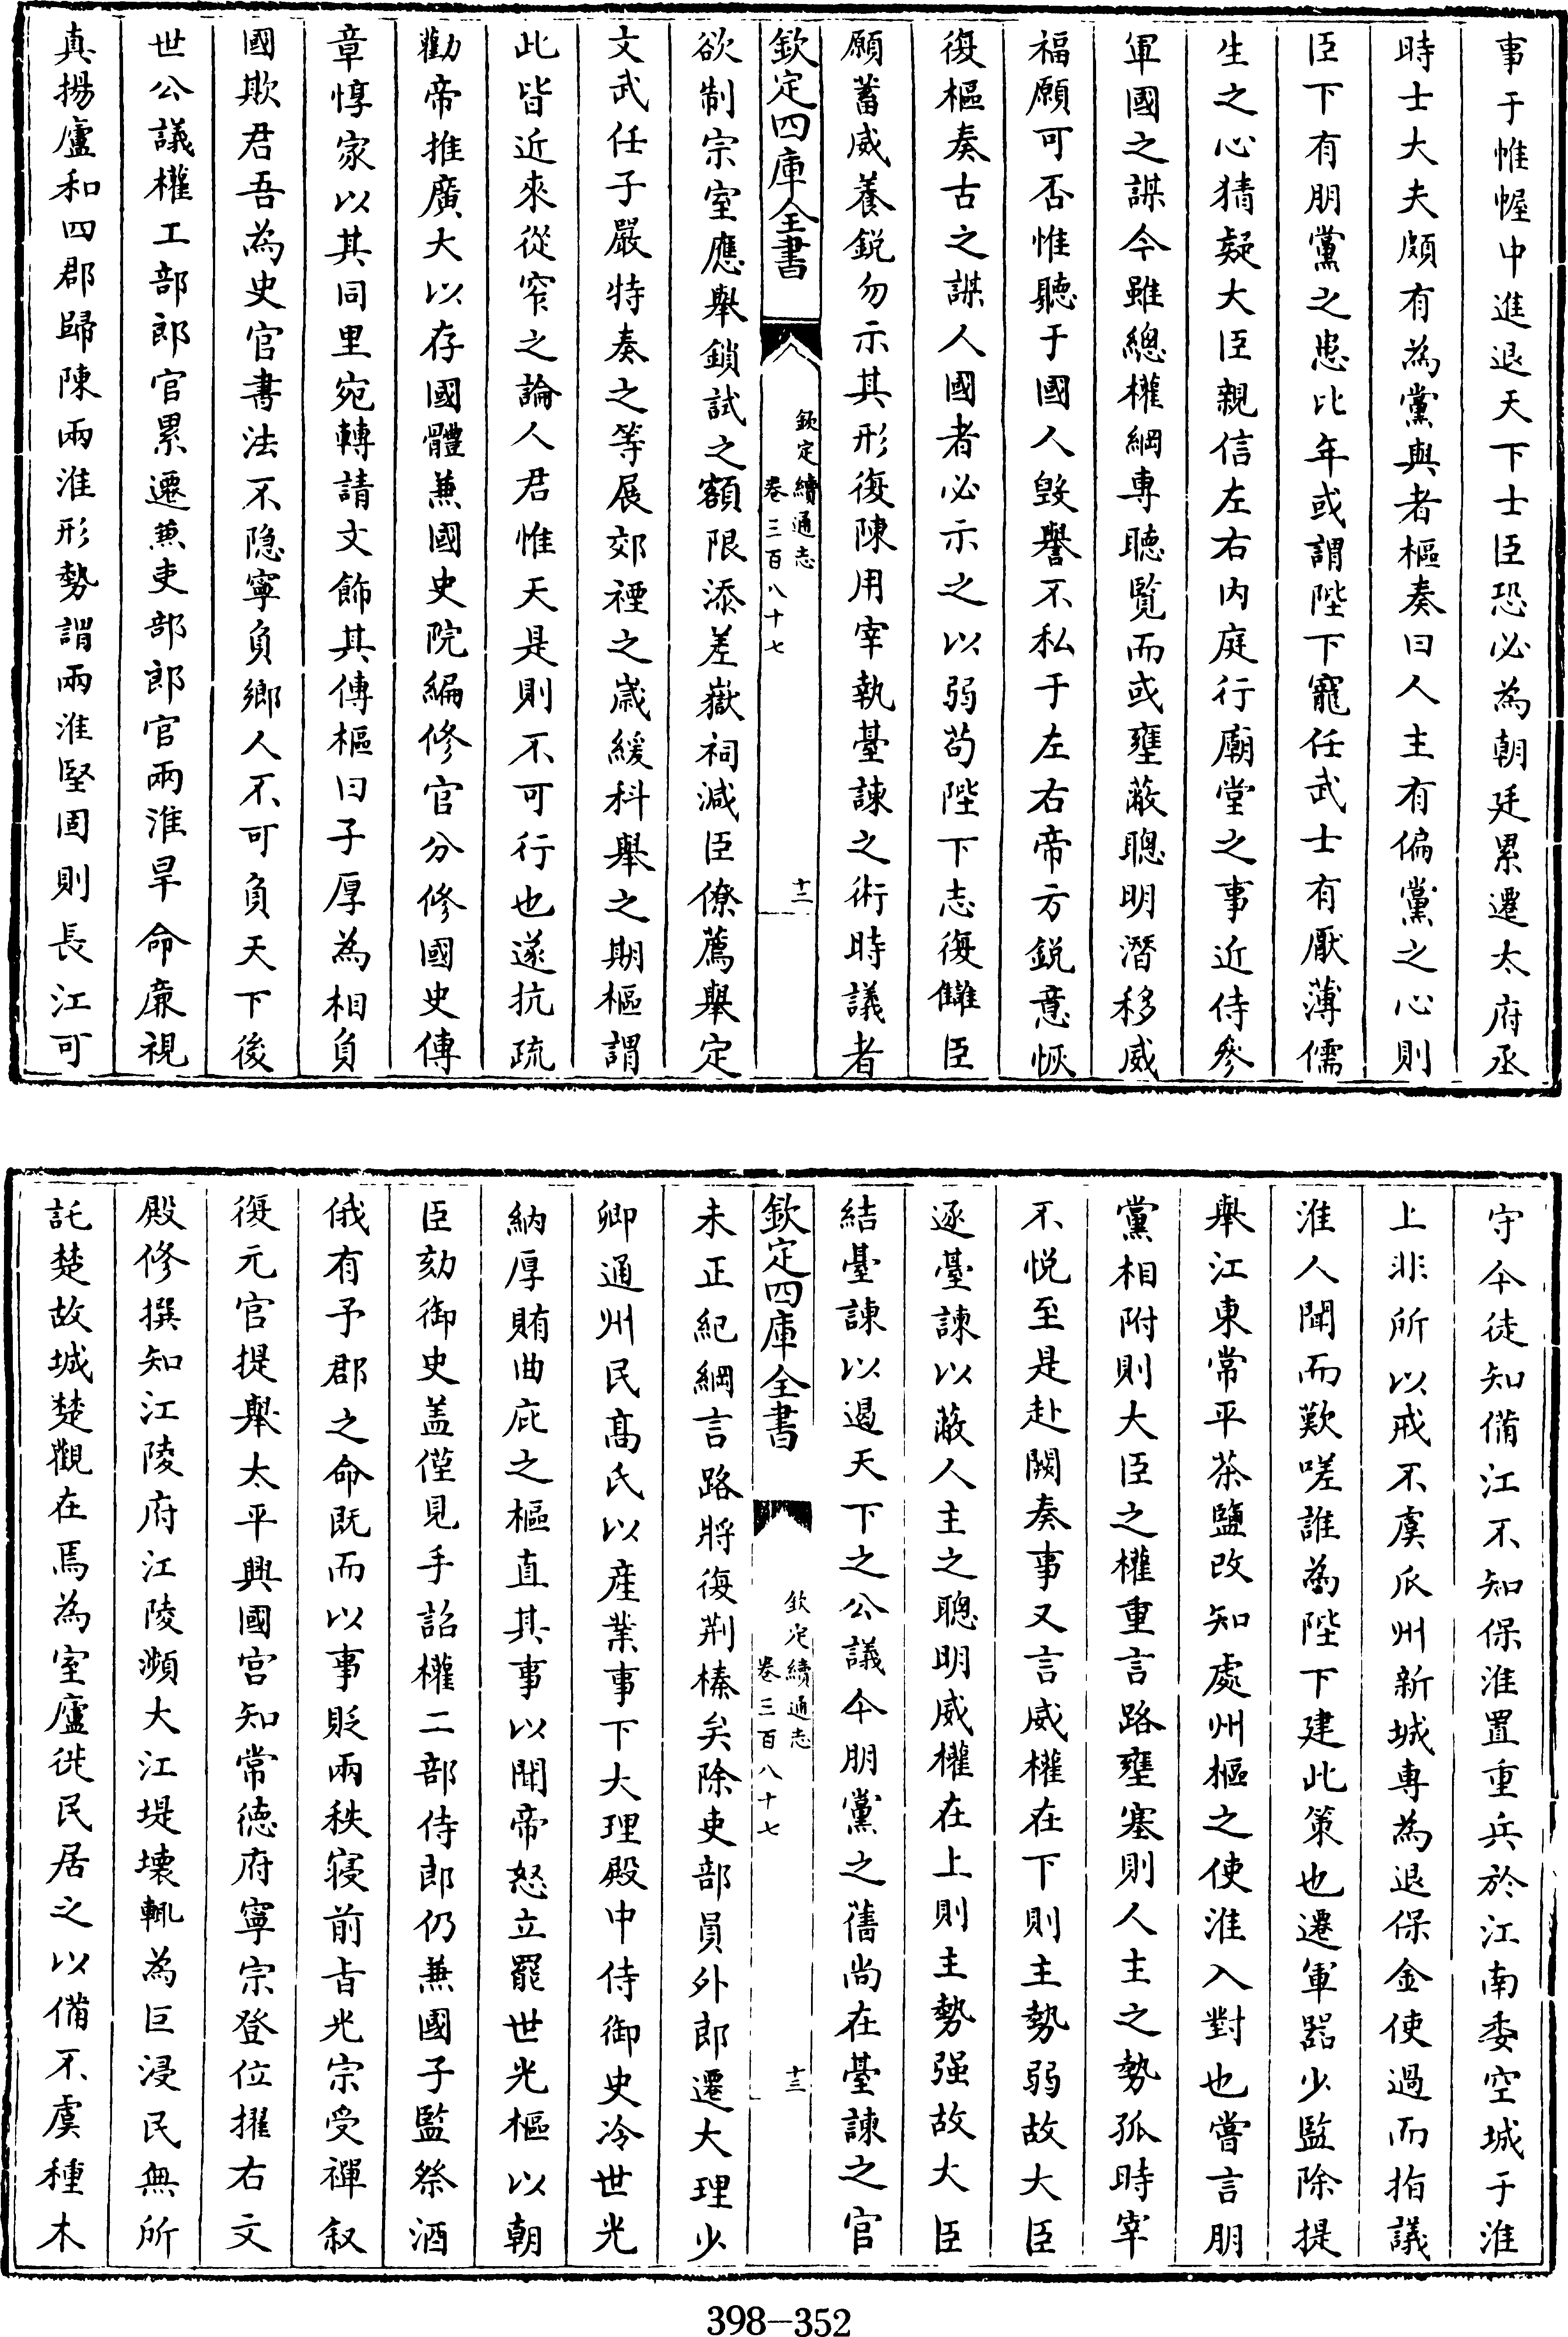 事于帷幄中進退天下士臣恐必為朝廷累遷太府丞
時士大夫頗有為黨與者樞奏曰人主有偏黨之心則
臣下有朋黨之患比年或謂陛下寵任武士有厭薄儒
生之心猜疑大臣親信左右内庭行廟堂之事近侍參
軍國之謀今雖總權綱專聽覧而或壅蔽聰明潛移威
福願可否惟聽于國人毀譽不私于左右帝方鋭意恢
復樞奏古之謀人國者必示之以弱苟陛下志復讎臣
願蓄威養鋭勿示其形復陳用宰執臺諫之術時議者
欽定四庫全書
欽定續通志
卷三百八十七
十二
欲制宗室應舉鎖試之額限添差嶽祠減臣僚薦舉定
文武任子嚴特奏之等展郊禋之歳緩科舉之期樞謂
此皆近來從窄之論人君惟天是則不可行也遂抗疏
勸帝推廣大以存國體兼國史院編修官分修國史傳
章惇家以其同里宛轉請文飾其傳樞曰子厚為相負
國欺君吾為史官書法不隐寧負鄉人不可負天下後
世公議權工部郎官累遷兼吏部郎官兩淮旱命廉視
真揚廬和四郡歸陳兩淮形勢謂兩淮堅固則長江可
守今徒知備江不知保淮置重兵於江南委空城于淮
上非所以戒不虞瓜州新城専為退保金使過而指議
淮人聞而歎嗟誰為陛下建此策也遷軍器少監除提
舉江東常平茶鹽改知處州樞之使淮入對也嘗言朋
黨相附則大臣之權重言路壅塞則人主之勢孤時宰
不悦至是赴闕奏事又言威權在下則主勢弱故大臣
逐臺諫以蔽人主之聰明威權在上則主勢强故大臣
結臺諫以遏天下之公議今朋黨之舊尚在臺諫之官
欽定四庫全書
欽定續通志
卷三百八十七
十三
未正紀綱言路將復荆榛矣除吏部員外郎遷大理少
卿通州民高氏以産業事下大理殿中侍御史冷世光
納厚賄曲庇之樞直其事以聞帝怒立罷世光樞以朝
臣劾御史盖僅見手詔權二部侍郎仍兼國子監祭酒
俄有予郡之命既而以事貶兩秩寝前㫖光宗受禪叙
復元官提舉太平興國宫知常徳府寧宗登位擢右文
殿修撰知江陵府江陵瀕大江堤壊輒為巨浸民無所
託楚故城楚觀在焉為室廬徙民居之以備不虞種木
398-352